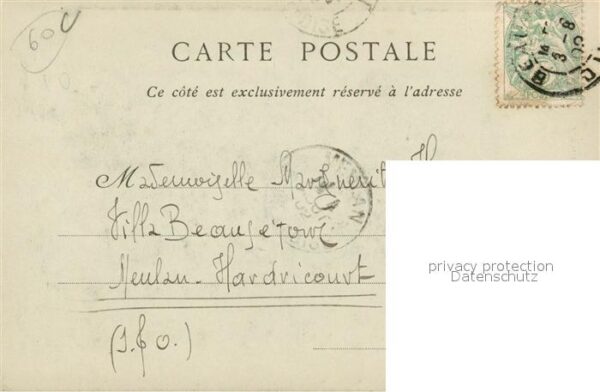 60c
CARTE POSTALE
Ce côté est exclusivement réservé à l'adresse
Mademoiselle
Villa Beauséjour
Meulan-Hardricourt
(S. & O.)
MEULAN
privacy protection
Datenschutz